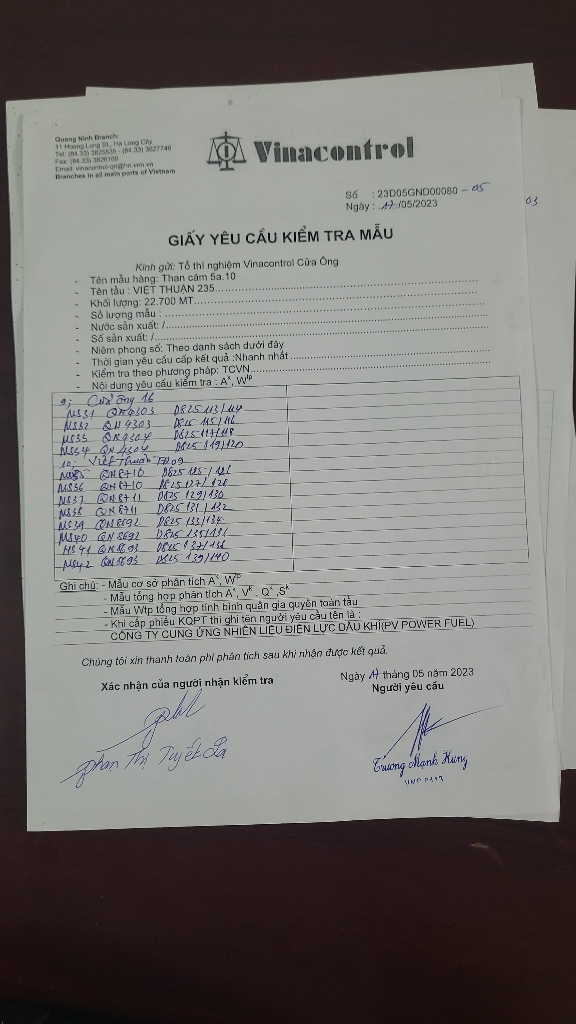 Quang Ninh Branch:
11 Hoang Long St., Ha Long City
Tel: (84.33) 3825535 - (84.33) 3627746
Fax: (84.33) 3826169
Email: vinacontrol-qn@hn.vnn.vn
Branches in all main ports of Vietnam
Vinacontrol
Số : 23D05GND00080 - 05
Ngày : 17/05/2023
03
GIẤY YÊU CẦU KIỂM TRA MẪU
Kính gửi: Tổ thí nghiệm Vinacontrol Cửa Ông
- Tên mẫu hàng: Than cám 5a.10
- Tên tầu : VIỆT THUẬN 235
- Khối lượng: 22.700 MT
- Số lượng mẫu :
- Nước sản xuất: /
- Số sản xuất: /
- Niêm phong số: Theo danh sách dưới đây
- Thời gian yêu cầu cấp kết quả :Nhanh nhất
- Kiểm tra theo phương pháp: TCVN
- Nội dung yêu cầu kiểm tra : Aᵏ, Wᵗᵖ
9; Cửa Ông 16
MS31 QN4303 D825 113/114
MS32 QN4303 D825 115/116
MS33 QN4304 D825 117/118
MS34 QN4304 D825 119/120
10; Việt Thuận
MS35 QN8710 D825
MS36 QN8710 D825 127/128
MS37 QN8711 D825 129/130
MS38 QN8711 D825 131/132
MS39 QN8692 D825 133/134
MS40 QN8692 D825
MS41 QN8693 D825 137/138
MS42 QN8693 D825 139/140
Ghi chú: - Mẫu cơ sở phân tích Aᵏ, Wᵗᵖ
- Mẫu tổng hợp phân tích Aᵏ, Vᵏ, Qᵏ, Sᵏ
- Mẫu Wtp tổng hợp tính bình quân gia quyền toàn tầu
- Khi cấp phiếu KQPT thì ghi tên người yêu cầu tên là :
CÔNG TY CUNG ỨNG NHIÊN LIỆU ĐIỆN LỰC DẦU KHÍ(PV POWER FUEL)
Chúng tôi xin thanh toán phí phân tích sau khi nhận được kết quả.
Ngày 17 tháng 05 năm 2023
Xác nhận của người nhận kiểm tra
Người yêu cầu
Phan Thị Tuyết
Trương Mạnh Hùng